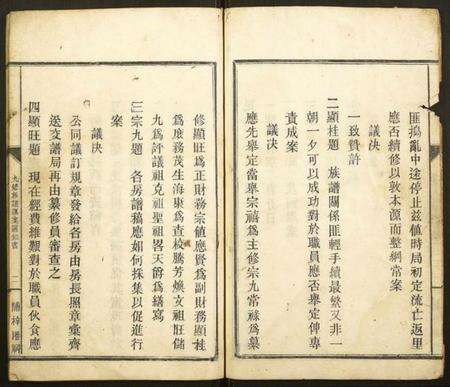 匪搗亂中途停止茲值時局初定流亡返里
應否續修以敦本源而整綱常案
議決
一致贊許
二顯桂題　族譜關係匪輕手續最繁又非一
朝一夕可以成功對於職員應否舉定俾專
責成案
議決
應先舉定當舉宗禧爲主修宗九常祿爲募
修顯旺爲正財務宗値應賢爲副財務顯桂
爲庶務茂生海東爲查校騰芳煥文祖旺儲
九爲評議祖克祖聖祖畧天爵爲繕寫
三宗九題　各房譜稿應如何採集以促進行
案
議決
公同議訂規章發給各房由房長照章彙齊
送交譜局再由纂修員審查之
四顯旺題　現在經費維艱對於職員伙食應
二